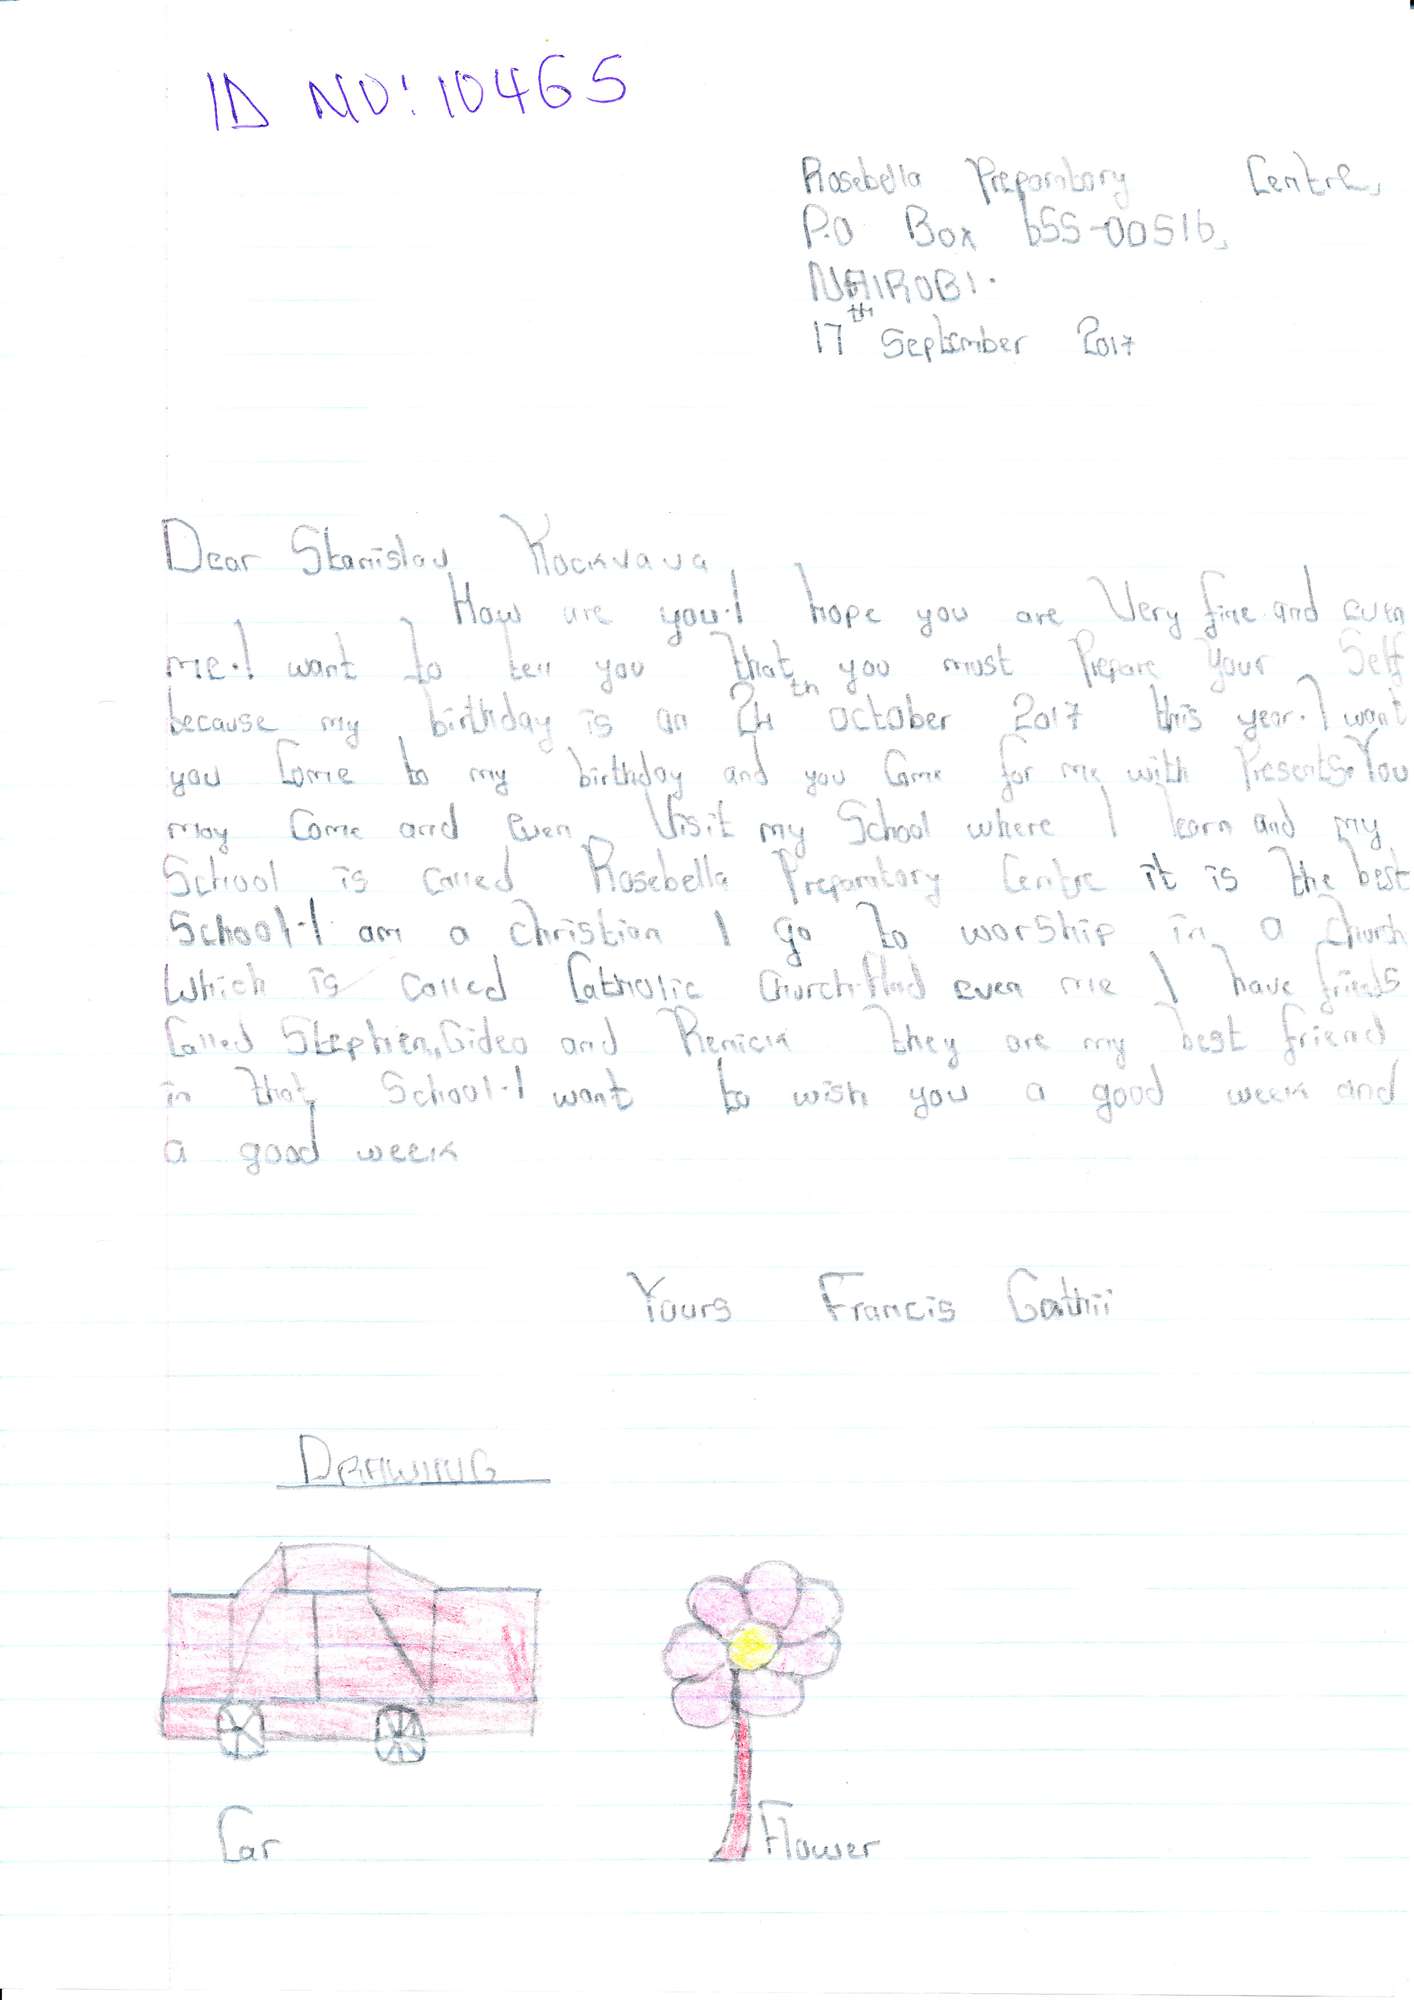 ID NO: 10465
Rosebella Preparatory Centre,
P.O Box 655-00516,
NAIROBI.
17th September 2017
Dear Stanislav Kockvava,
How are you.I hope you are Very fine.and even
me.I want to tell you that you must Prepare Your Self
because my birthday is an 24th october 2017 this year.I want
you Come to my birthday and you Came for me with Presents.You
may Come and Even Visit my School where I learn and my
School is called Rosebella Preparatory Centre it is The best
School.I am a christian I go To worship in a Church
Which is called Catholic Church.And even me I have friends
Called Stephen,Gideo and Renick They are my best friend
in that School.I want to wish you a good week and
a good week
Yours Francis Gathii
DRAWING
Car
Flower